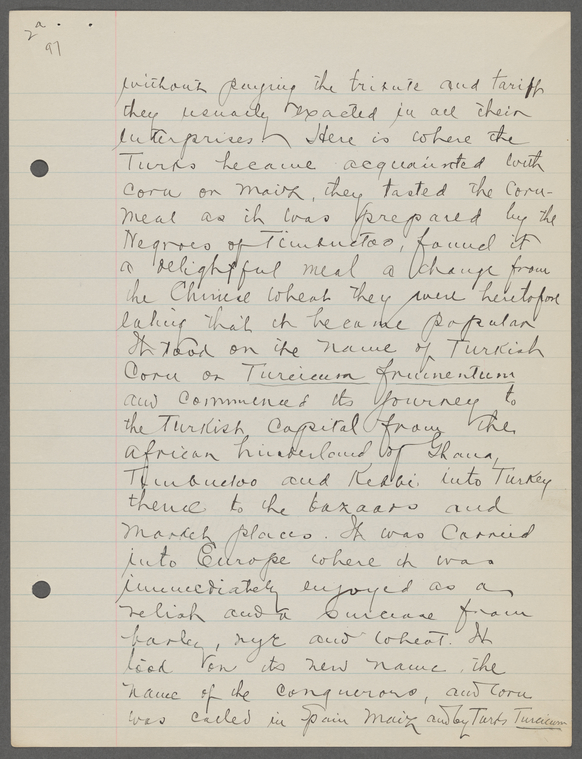 2a
97
without paying the tribute and tariff
they usually exacted in all their
enterprises. Here is where the
Turks became acquainted with
corn or maiz, they tasted the corn-
meal as it was prepared by the
Negroes of Timbuctoo, found it
a delightful meal a change from
the Chinese wheat they were heretofore
eating that it became popular
It tood on the name of Turkish
Corn or Turcicum frumentum
and commenced its journey to
the Turkish Capital from the
african hinterland of Ghana,
Timbuctoo and Kebbi into Turkey
thence to the bazaars and
market places. It was carried
into Europe where it was
immediately enjoyed as a
relish and a surcease from
barley, rye and wheat. It
tood on its new name, the
name of the conquerors, and corn
was called in Spain Maiz and by Turks Turcicum